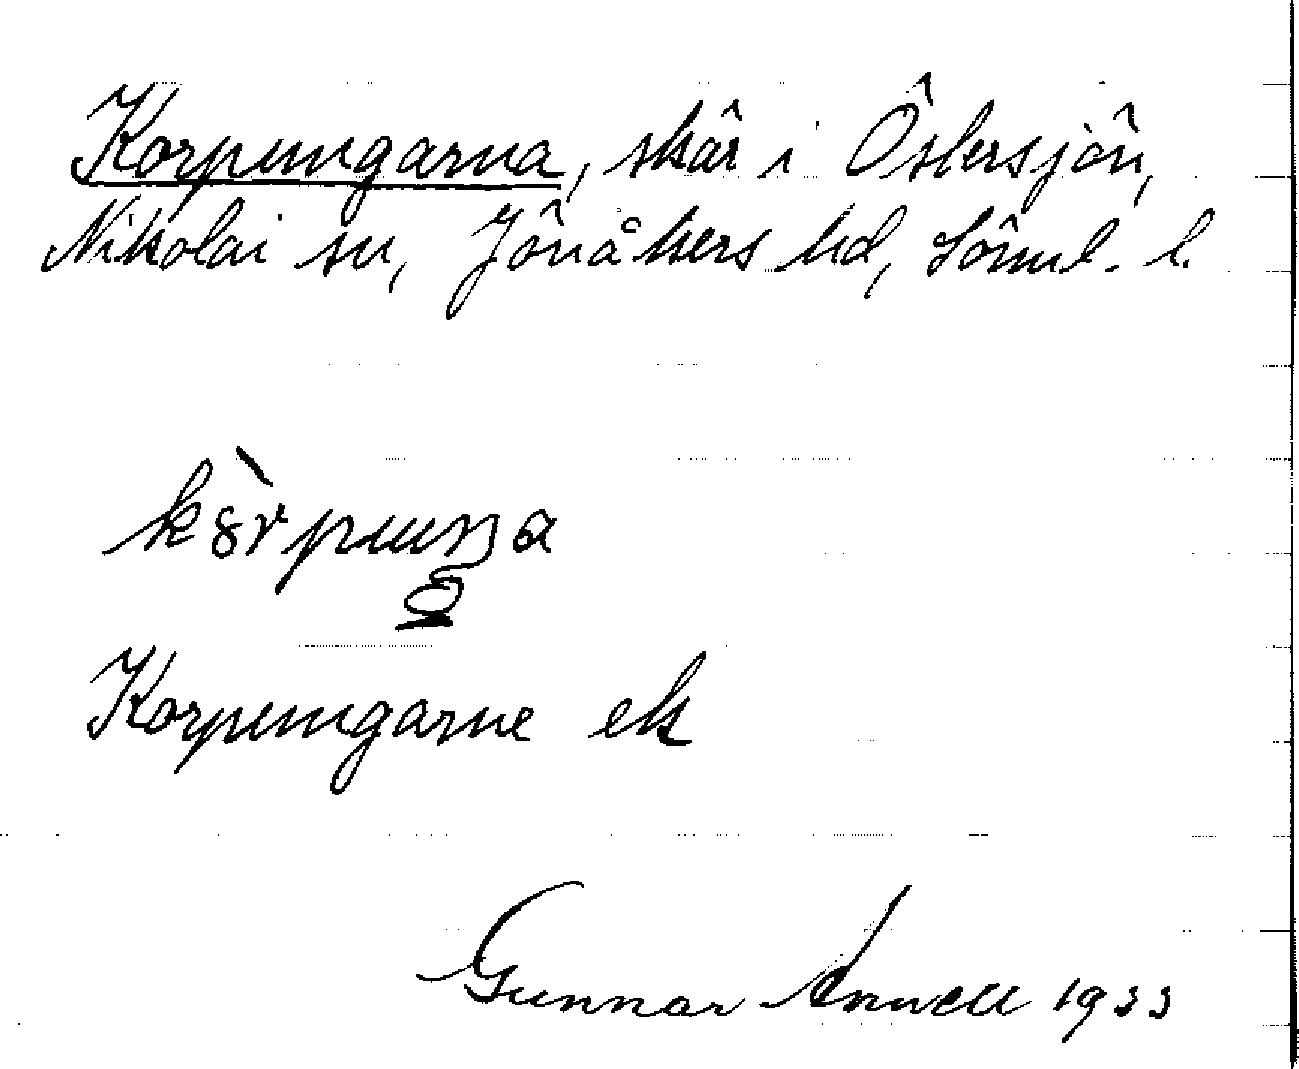 Korpungarna, skär i Östersjön,
Nikolai sn, Jönåkers hd, Söml. l.
kɞ̀rpuŋa
Korpungarne ek
Gunnar 1933